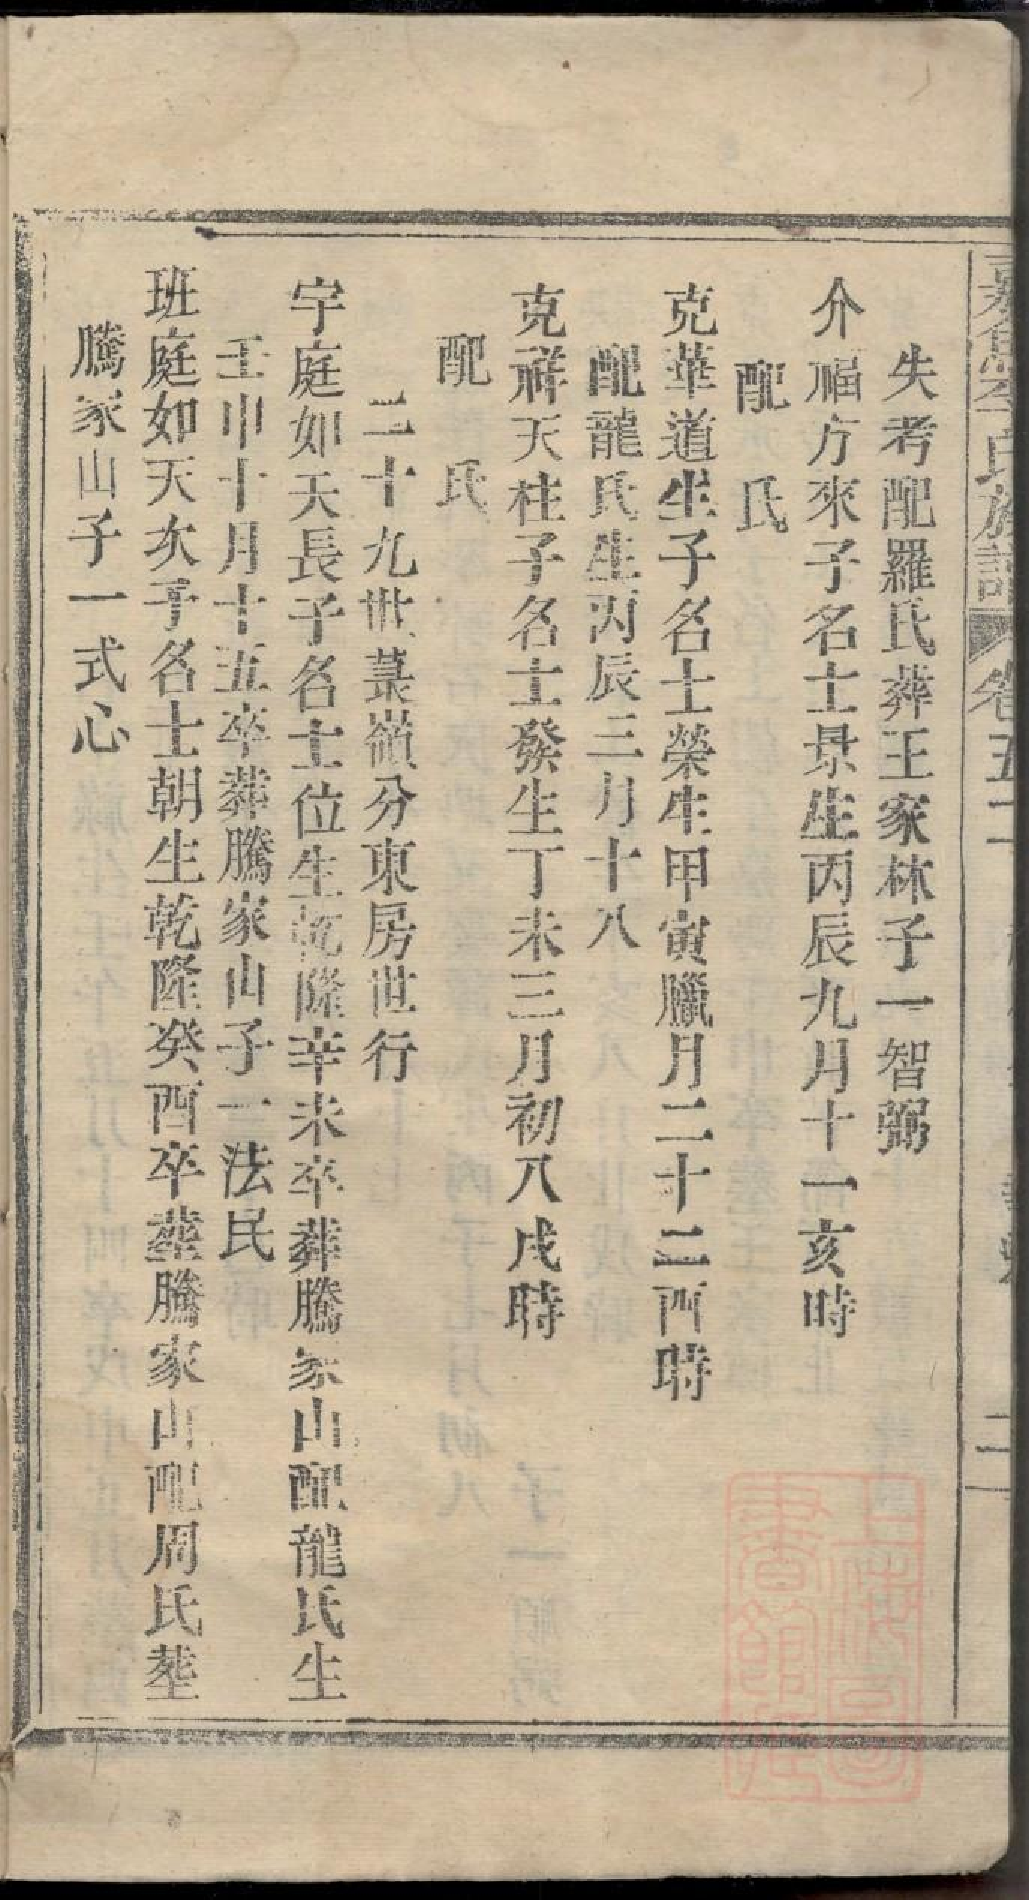 失考配羅氏葬王家林子一智弼
介福方來子名士景生丙辰九月十一亥時
配　氏
克華道生子名士榮生甲寅臘月二十二酉時
配龍氏生丙辰三月十八
克祥天柱子名士發生丁未三月初八戌時
配　氏
二十九世菉嶺分東房世行
宇庭如天長子名士位生乾隆辛未卒葬騰家山配龍氏生
壬申十月十五卒葬騰家山子一法民
班庭如天次子名士朝生乾隆癸酉卒塟騰家山配周氏塟
騰家山子一式心
上海圖書館藏